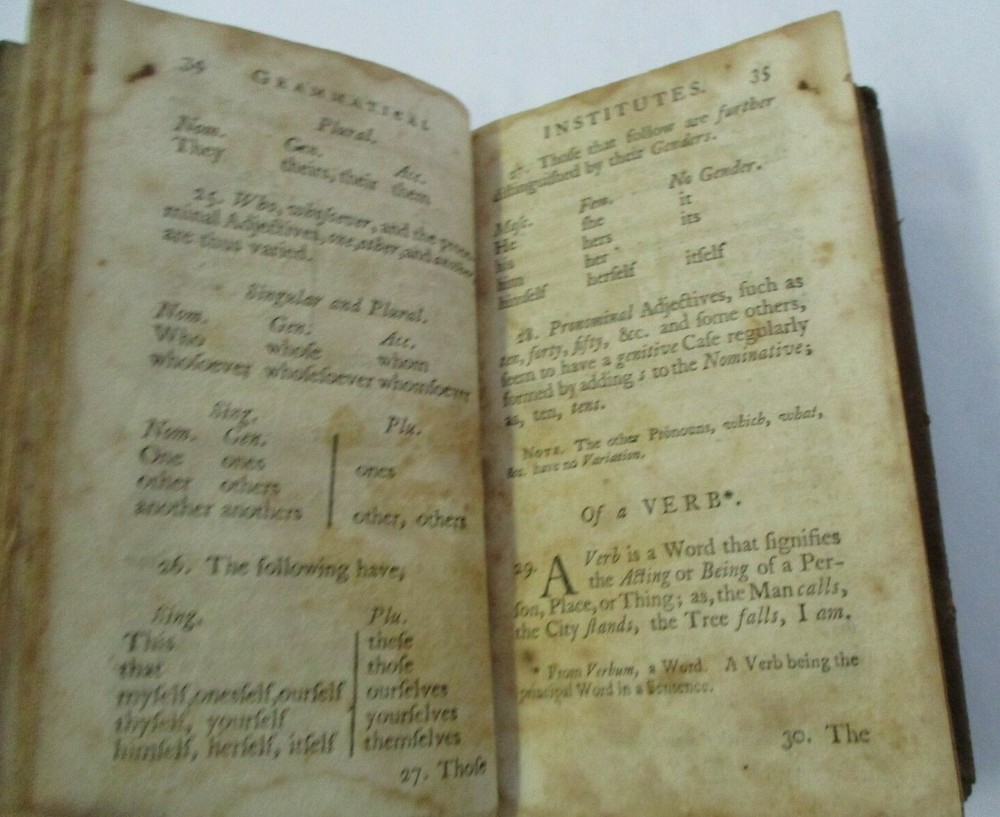 34 GRAMMATICAL
Plural.
Nom. Gen. Acc.
They theirs, their them
25. Who, whoſoever, and the prono-
minal Adjectives, one, other, and another
are thus varied.
Singular and Plural.
Nom. Gen. Acc.
Who whoſe whom
whoſoever whoſeſoever whomſoever
Sing. Plu.
Nom. Gen.
One ones ones
other others
another anothers other, others
26. The following have,
Sing. Plu.
This theſe
that thoſe
myſelf, oneſelf, ourſelf ourſelves
thyſelf, yourſelf yourſelves
himſelf, herſelf, itſelf themſelves
27. Thoſe
INSTITUTES. 35
27. Thoſe that follow are further
diſtinguiſhed by their Genders.
Maſc. Fem. No Gender.
He ſhe it
his hers its
him her
himſelf herſelf itſelf
28. Pronominal Adjectives, ſuch as
ten, forty, fifty, &c. and ſome others,
ſeem to have a genitive Caſe regularly
formed by adding s to the Nominative;
as, ten, tens.
NOTE. The other Pronouns, which, what,
&c. have no Variation.
Of a VERB*.
29. A Verb is a Word that ſignifies
the Acting or Being of a Per-
ſon, Place, or Thing; as, the Man calls,
the City ſtands, the Tree falls, I am.
* From Verbum, a Word. A Verb being the
principal Word in a Sentence.
30. The